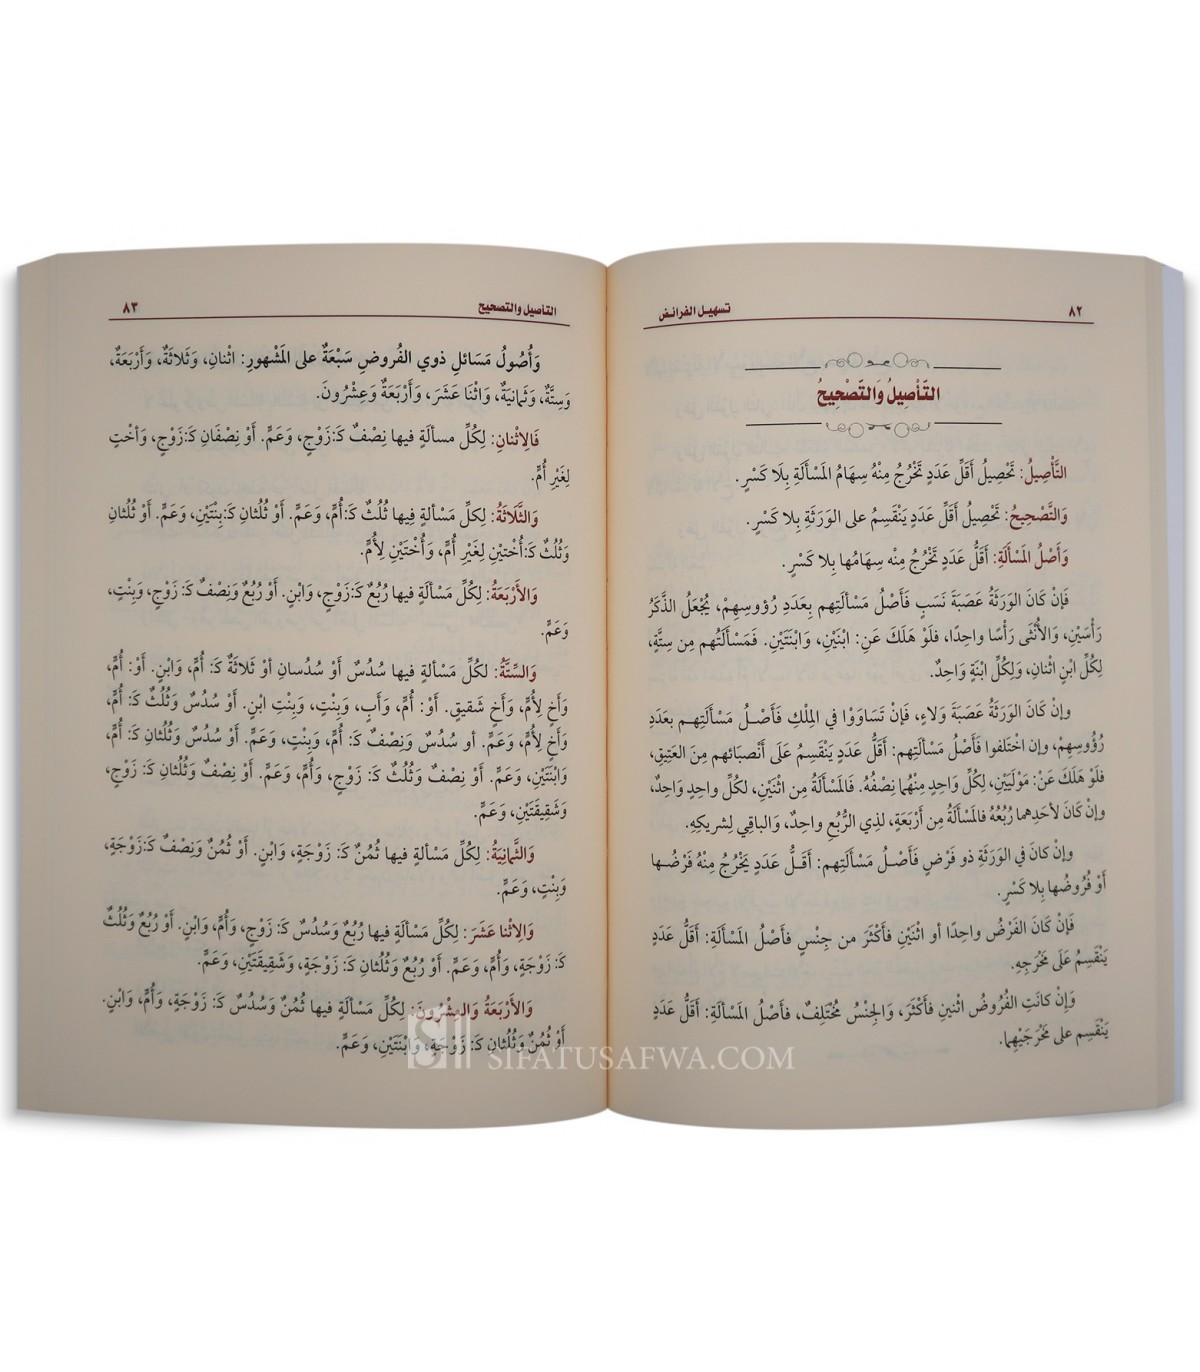 ٨٢
تسهيل الفرائض
التَّأْصِيلُ وَالتَّصْحِيحُ
التَّأْصِيلُ: تَحْصِيلُ أَقَلِّ عَدَدٍ تَخْرُجُ مِنْهُ سِهَامُ المَسْأَلَةِ بِلَا كَسْرٍ.
وَالتَّصْحِيحُ: تَحْصِيلُ أَقَلِّ عَدَدٍ يَنْقَسِمُ على الوَرَثَةِ بِلا كَسْرٍ.
وَأَصْلُ المَسْأَلَةِ: أَقَلُّ عَدَدٍ تَخْرُجُ مِنْه سِهَامُها بِلا كَسْرٍ.
فَإنْ كان الوَرَثَةُ عَصَبَةَ نَسَبٍ فَأَصْلُ مَسْأَلتِهِم بِعَدَدِ رُؤوسِهِمْ، يُجْعَلُ الذَّكَرُ
رَأْسَيْنِ، وَالأُنْثَى رَأْسًا واحِدًا، فلَوْ هَلَكَ عَنِ: ابْنَيْنِ، وَابْنَتَيْنِ. فَمَسْأَلَتُهم مِن سِتَّةٍ،
لِكُلِّ ابنٍ اثْنانِ، وَلِكُلِّ ابْنَةٍ وَاحِدٌ.
وإنْ كان الوَرَثَةُ عَصَبَةَ وَلاءٍ، فَإنْ تَسَاوَوْا في المِلْكِ فَأَصْلُ مَسْأَلَتِهِم بعَدَدِ
رُؤُوسِهِمْ، وإن اخْتَلفوا فَأَصْلُ مَسْأَلَتِهِم: أَقَلُّ عَدَدٍ يَنْقَسِمُ عَلَى أَنْصبَائهم مِنَ العَتِيقِ،
فلَوْ هَلَكَ عَنْ: مَوْلَيَيْنِ، لِكُلِّ وَاحِدٍ مِنْهُما نِصْفُهُ. فَالمَسْأَلَةُ مِن اثْنَيْنِ، لكُلِّ واحِدٍ وَاحِدٌ،
وإن كَانَ لأحَدِهما رُبُعُهُ فالمَسْأَلَةُ مِن أَرْبَعَةٍ، لذِي الرُّبُعِ واحِدٌ، وَالباقِي لِشَرِيكِهِ.
وإنْ كانَ في الوَرَثَةِ ذو فَرْضٍ فَأَصْلُ مَسْأَلتِهم: أَقَلُّ عَدَدٍ يَخْرُجُ مِنْهُ فَرْضُها
أَوْ فُرُوضُها بِلا كَسْرٍ.
فَإِنْ كَانَ الفَرْضُ واحِدًا أو اثْنَيْنِ فَأَكْثَرَ من جِنْسٍ فأَصْلُ المَسْأَلَةِ: أَقَلُّ عَدَدٍ
يَنْقَسِمُ عَلَى مَخْرَجِهِ.
وَإنْ كانَتِ الفُرُوضُ اثْنينِ فأَكْثَرَ، وَالجِنْسُ مُخْتَلِفٌ، فأَصْلُ المَسْأَلَةِ: أَقَلُّ عَدَدٍ
يَنْقَسِمُ على مَخْرَجَيْهِما.
التأصيل والتصحيح
٨٣
وَأُصُولُ مَسَائلِ ذوي الفُروضِ سَبْعَةٌ على المَشْهورِ: اثْنانِ، وَثَلاثَةٌ، وَأَرْبَعَةٌ،
وَسِتَّةٌ، وَثَمانِيَةٌ، وَاثْنا عَشَرَ، وَأَرْبَعَةٌ وَعِشْرُونَ.
فَالِاثْنانِ: لِكُلِّ مسألةٍ فيها نِصْفٌ كَـ:زَوْجٍ، وَعَمٍّ. أَوْ نِصْفَانِ كَـ:زَوْجٍ، وَأخْتٍ
لِغَيْرِ أُمٍّ.
وَالثَّلَاثَةُ: لِكلِّ مَسْأَلةٍ فِيها ثُلُثٌ كَـ:أُمٍّ، وَعَمٍّ. أَوْ ثُلُثانِ كَـ:بِنْتَيْنِ، وَعَمٍّ. أَوْ ثُلُثانِ
وَثُلُثٌ كَـ: أُخْتيْنِ لِغَيْرِ أُمٍّ، وَأُخْتَيْنِ لِأُمٍّ.
وَالأَرْبَعَةُ: لِكُلِّ مَسْألَةٍ فيها رُبُعٌ كَـ:زَوْجٍ، وَابْنٍ. أَوْ رُبُعٌ وَنِصْفٌ كَـ: زَوْجٍ، وَبِنْتٍ،
وَعَمٍّ.
وَالسِّتَّةُ: لكُلِّ مَسْألةٍ فيها سُدُسٌ أَوْ سُدُسان أوْ ثلاثَةٌ كَـ: أُمٍّ، وَابْنٍ. أَوْ: أُمٍّ،
وَأَخٍ لِأُمٍّ، وَأَخٍ شَقيقٍ. أَوْ: أُمٍّ، وَأَبٍ، وَبِنْتٍ، وَبِنْتِ ابْنٍ. أَوْ سُدُسٌ وَثُلُثٌ كَـ: أُمٍّ،
وَأَخٍ لِأُمٍّ، وَعَمٍّ. أو سُدُسٌ وَنِصْفٌ كَـ: أُمٍّ، وَبِنْتٍ، وَعَمٍّ. أَوْ سُدُسٌ وَثُلُثانِ كَـ: أُمٍّ،
وَابْنَتَيْنِ، وَعَمٍّ. أَوْ نِصْفٌ وَثُلُثٌ كَـ: زَوْجٍ، وَأُمٍّ، وَعَمٍّ. أَوْ نِصْفٌ وَثُلُثانِ كَـ: زَوْجٍ،
وَشَقِيقَتَيْنِ، وَعَمٍّ.
وَالثَّمانِيَةُ: لِكُلِّ مَسْألةٍ فيها ثُمُنٌ كَـ: زَوْجَةٍ، وَابْنٍ. أَوْ ثُمُنٌ وَنِصْفٌ كَـ:زَوْجَةٍ،
وَبِنْتٍ، وَعَمٍّ.
وَالِاثْنا عَشَرَ: لِكُلِّ مَسْألَةٍ فيها رُبُعٌ وَسُدُسٌ كَـ: زَوْجٍ، وَأُمٍّ، وَابْنٍ. أَوْ رُبُعٌ وَثُلُثٌ
كَـ: زَوْجَةٍ، وَأُمٍّ، وَعَمٍّ. أَوْ رُبُعٌ وَثُلُثانِ كَـ: زَوْجَةٍ، وَشَقِيقَتَيْنِ، وَعَمٍّ.
وَالأَرْبَعَةُ وَالعِشْرُونَ: لِكُلِّ مَسْأَلةٍ فيها ثُمُنٌ وَسُدُسٌ كَـ: زَوْجَةٍ، وَأُمٍّ، وَابْنٍ.
أَوْ ثُمُنٌ وَثُلُثانِ كَـ: زَوْجَةٍ، وَابْنَتَيْنِ، وَعَمٍّ.
SIFATUSAFWA.COM